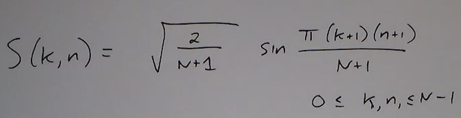 S(k,n) = √(2/(N+1)) sin (π(k+1)(n+1))/(N+1)
0 ≤ k,n, ≤ N-1